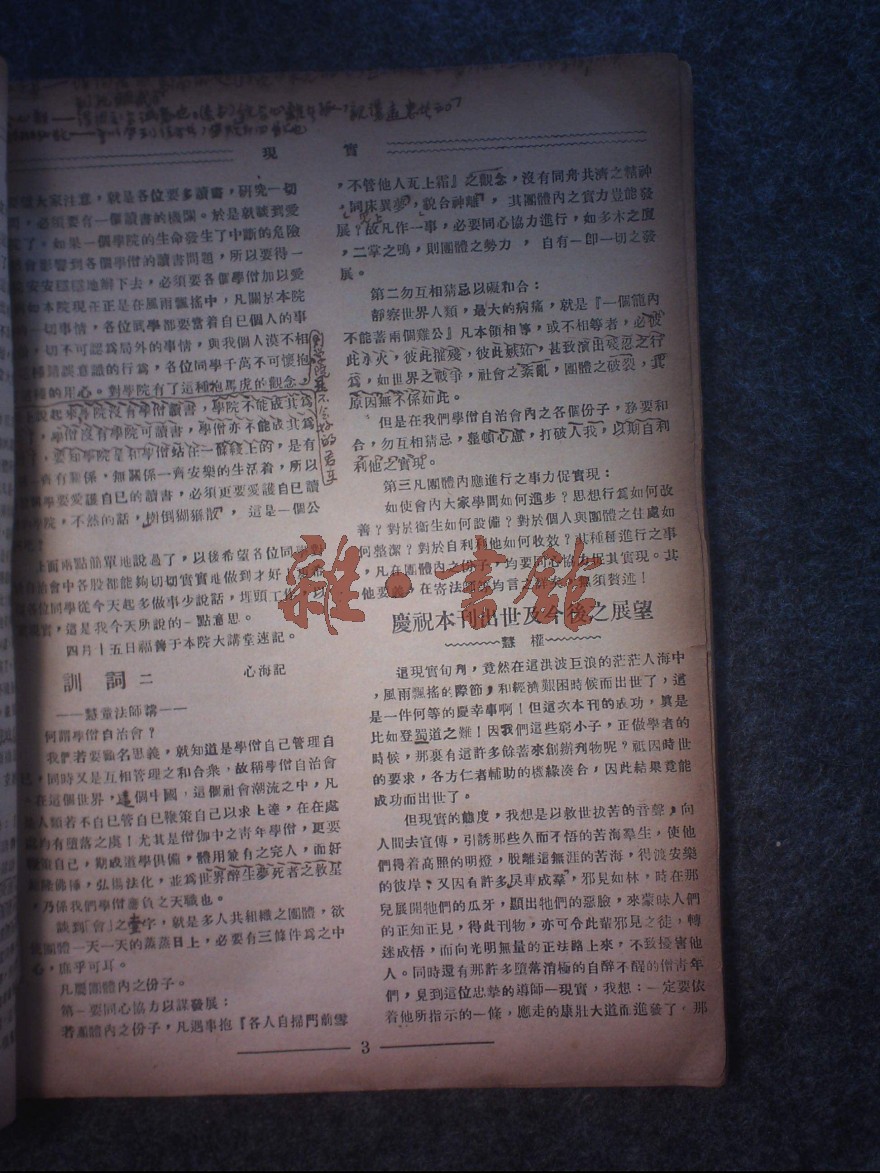 現實
大家注意，就是各位要多讀書，研究一切
，必須要有一個讀書的機關。於是就談到愛
了。如果一個學院的生命發生了中斷的危險
會影響到各個學僧的讀書問題，所以要得一
安安穩穩地解下去，必須要各個學僧加以愛
如本院現在正是在風雨飄搖中，凡關於本院
一切事情，各位同學都要當着自己個人的事
，切不可認爲局外的事情，與我個人漠不相
種錯誤意識的行爲，各位同學千萬不可懷抱
種的用心。對學院有了這種抱馬虎的觀念，
說起來各院沒有學僧讀書，學院不能成其爲
，學僧沒有學院可讀書，學僧亦不能成其爲
，要知學院是和學僧站在一條綫上的，是有
一齊有關係，無關係一齊安樂的生活着，所以
個學要愛護自己的讀書，必須更要愛護自己讀
學院，不然的話，樹倒猢猻散，這是一個公
上面兩點簡單地說過了，以後希望各位同學對
自治會中各股都能夠切切實實地做到才好，更希
各位同學從今天起多做事少說話，埋頭工作，以
現實，這是我今天所說的一點意思。
四月十五日福善于本院大講堂速記。
訓詞二　心海記
——慧童法師講——
何謂學僧自治會？
我們若要顧名思義，就知道是學僧自己管理自
己，同時又是互相管理之和合衆，故稱學僧自治會
。在這個世界，這個中國，這個社會潮流之中，凡
人類若不自己管自己鞭策自己以求上達，在在處
內有墮落之虞！尤其是僧伽中之青年學僧，更要
策自己，期成道學俱備，體用兼有之完人，而好
隆佛種，弘揚法化，並爲世界醉生夢死者之救星
，乃係我們學僧應負之天職也。
談到「會」之壹字，就是多人共組織之團體，欲
團體一天一天的蒸蒸日上，必要有三條件爲之中
心，庶乎可耳。
凡屬團體內之份子。
第一要同心協力以謀發展：
若團體內之份子，凡遇事抱『各人自掃門前雪
，不管他人瓦上霜』之觀念，沒有同舟共濟之精神
，同床異夢，貌合神離，其團體內之實力豈能發
展？故凡作一事，必要同心協力進行，如多木之廈
，二掌之鳴，則團體之勢力，自有一卽一切之發
展。
第二勿互相猜忌以礙和合：
靜察世界人類，最大的病痛，就是『一個籠內
不能蓄兩個雞公』凡本領相等，或不相等者，必彼
此水火，彼此摧殘，彼此嫉妬，甚致演出殘忍之行
爲，如世界之戰爭，社會之紊亂，團體之破裂，其
原因無不係如此。
但是在我們學僧自治會內之各個份子，務要和
合，勿互相猜忌，整頓心慮，打破人我，以期自利
利他之實現。
第三凡團體內應進行之事力促實現：
如使會內大家學問如何進步？思想行爲如何改
善？對於衞生如何設備？對於個人與團體之住處如
何整潔？對於自利利他如何收效？其種種進行之事
，凡在團體內之份子，均要同心協力促其實現。其
他要義，在寄法師等均言之詳矣，無須贅述！
慶祝本刊出世及今後之展望
慧權
這現實旬刋，竟然在這洪波巨浪的茫茫人海中
，風雨飄搖的際節，和經濟艱困時候而出世了，這
是一件何等的慶幸事啊！但這次本刊的成功，眞是
比如登蜀道之難！因我們這些窮小子，正做學者的
時候，那裏有這許多餘蓄來創辦刋物呢？祇因時世
的要求，各方仁者輔助的機緣湊合，因此結果竟能
成功而出世了。
但現實的態度，我想是以救世拔苦的音聲，向
人間去宣傳，引誘那些久而不悟的苦海羣生，使他
們得着高照的明燈，脫離這無涯的苦海，得渡安樂
的彼岸；又因有許多良車成羣，邪見如林，時在那
兒展開牠們的瓜牙，顯出牠們的惡臉，來蒙昧人們
的正知正見，得此刊物，亦可令此輩邪見之徒，轉
迷成悟，而向光明無量的正法路上來，不致擾害他
人。同時還有那許多墮落消極的自醉不醒的僧青年
們，見到這位忠摯的導師—現實，我想：一定要依
着他所指示的一條，應走的康壯大道而進發了，那
3
雜·書館